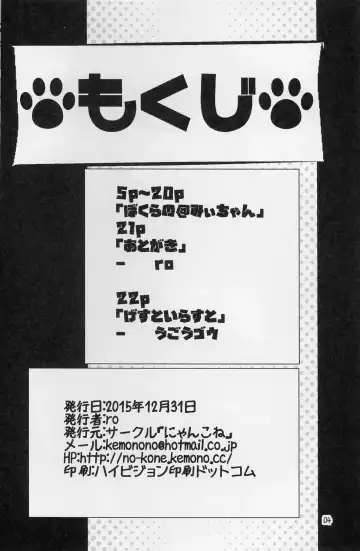 もくじ
5p~20p
「ぼくらの@みぃちゃん」
21p
「あとがき」
- ro
22p
「げすといらすと」
- うごうゴウ
発行日:2015年12月31日
発行者:ro
発行元:サークル「にゃんこね」
メール:kemonono@hotmail.co.jp
HP:http://no-kone.kemono.cc/
印刷:ハイビジョン印刷ドットコム
04